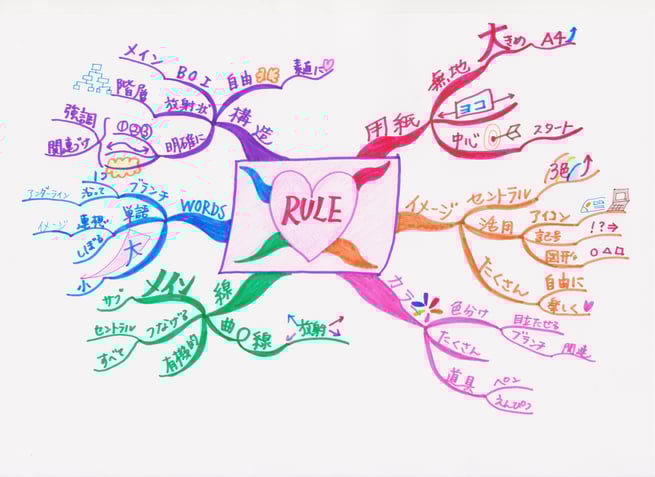 RULE
用紙
無地
大きめ
A4
ヨコ
中心
スタート
イメージ
セントラル
3色
活用
アイコン
記号
!?⇒
図形
○△□
たくさん
自由に
楽しく
カラー
色分け
目立たせる
ブランチ
関連
たくさん
道具
ペン
えんぴつ
線
メイン
サブ
つなげる
セントラル
すべて
有機的
曲線
放射
WORDS
1つ
ブランチ
沿って
アンダーライン
単語
連想
イメージ
しぼる
大
小
構造
自由
素直に
放射状
BOI
メイン
階層
明確に
①②③
強調
関連づけ